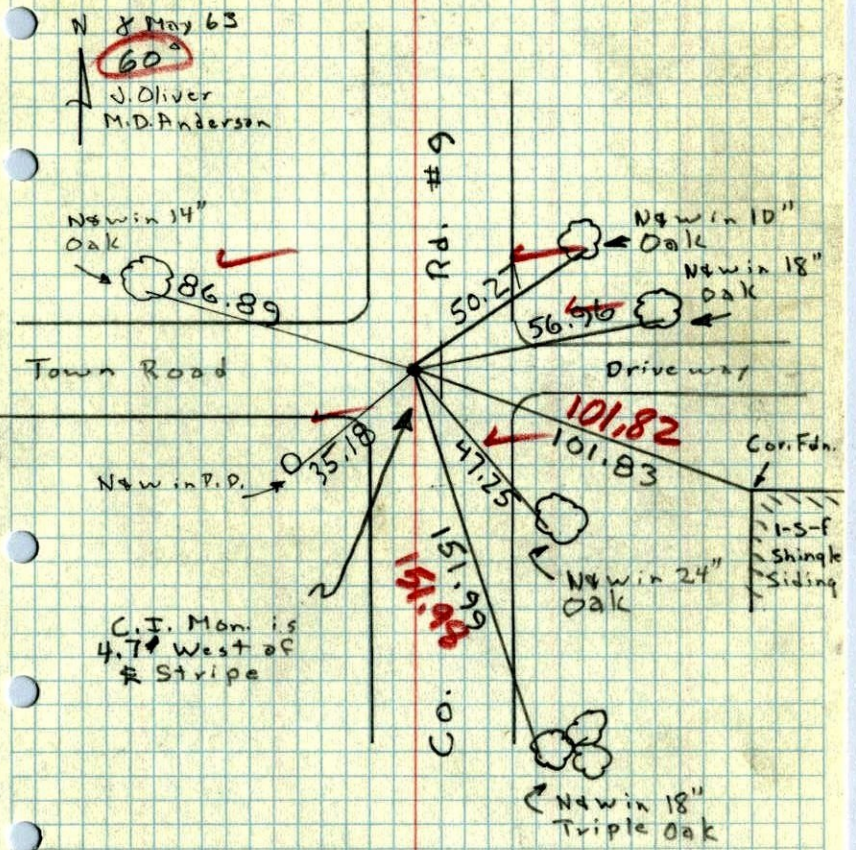 N 8 May 63
60°
J. Oliver
M.D. Anderson
Rd. #9
N&W in 14"
Oak
86.89
N&W in 10"
Oak
50.27
N&W in 18"
Oak
56.96
Town Road
Driveway
101.82
101.83
Cor. Fdn.
1-S-F
Shingle
Siding
35.18
N&W in P.P.
47.25
N&W in 24"
Oak
151.99
151.98
C.I. Mon. is
4.7' West of
℄ Stripe
Co.
N&W in 18"
Triple Oak